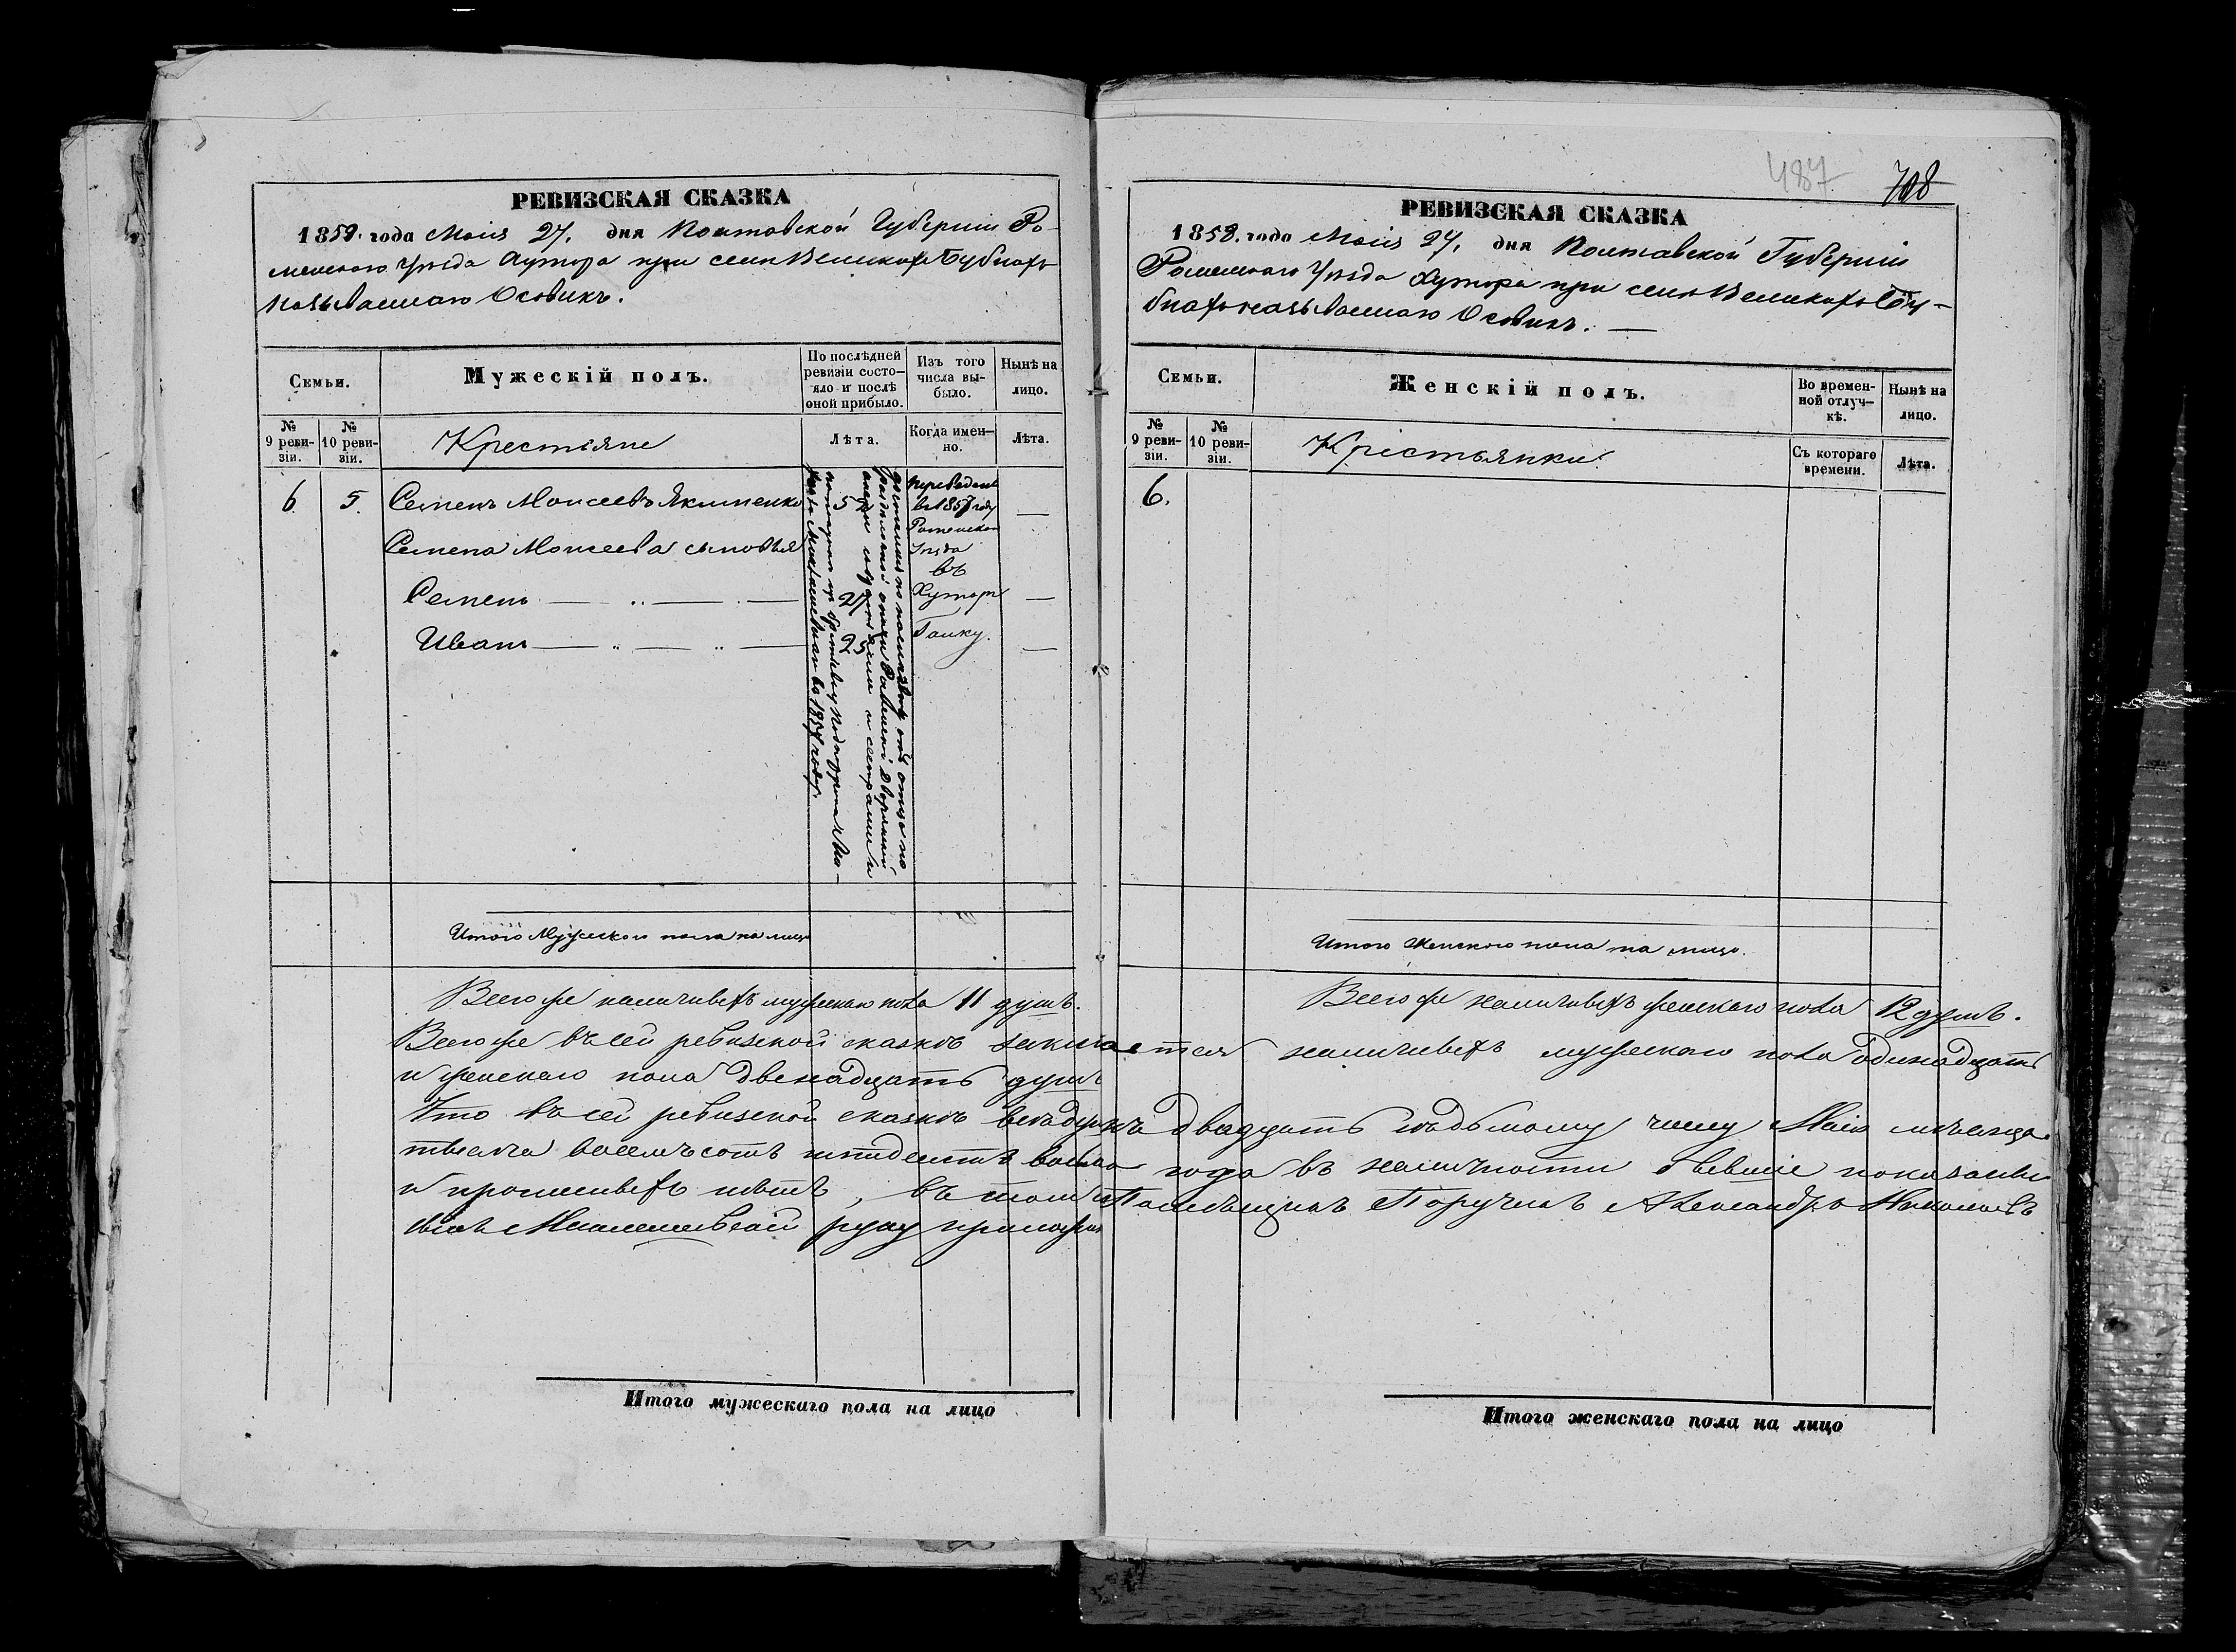 РЕВИЗСКАЯ СКАЗКА
1858. года Маія 27. дня Полтавской Губерніи Ро-
менскаго Уѣзда Хутора при селѣ Великихъ Бубнахъ
называемаго Осовикъ.
Семьи.
Мужескій полъ.
По послѣдней ревизіи состо-
яло и послѣ оной прибыло.
Изъ того числа вы-
было.
Нынѣ на лицо.
№ 9 реви-
зіи.
№ 10 реви-
зіи.
Крестьяне
Лѣта.
Когда имен-
но.
Лѣта.
6 5. Семенъ Моисеевъ Якименко 5 переведены —
въ 1857 году
Роменскаго
Семена Моисеева сыновья Уѣзда
въ
Семенъ — " — — 21 Хуторъ —
Иванъ — " — " — 25 Гайку. —
Итого Мужескаго пола на лицо
Всего же наличныхъ мужескаго пола 11 душъ.
487
708
РЕВИЗСКАЯ СКАЗКА
1858. года Маія 27. дня Полтавской Губерніи
Роменскаго Уѣзда Хутора при селѣ Великихъ Бу-
бнахъ называемаго Осовикъ. —
Семьи.
Женскій полъ.
Во времен-
ной отлуч-
кѣ.
Нынѣ на лицо.
№ 9 реви-
зіи.
№ 10 реви-
зіи.
Крестьянки
Съ котораго времени.
Лѣта.
6.
Итого Женскаго пола на лицо.
Всего же наличныхъ женскаго пола 12 душъ.
Всего же въ сей ревизской сказкѣ заключается наличныхъ мужескаго пола одинадцать
и женскаго пола двенадцать душъ
Что въ сей ревизской сказкѣ всѣ души къ двадцать седьмому числу Маія мѣсяца
тысяча восемьсотъ пятдесятъ восьмаго года въ наличности бывшіе показаны
и пропущенныхъ нѣтъ, въ томъ Помѣщикъ Поручикъ Александръ Николаевъ
сынъ руку приложилъ
Итого мужескаго пола на лицо
Итого женскаго пола на лицо